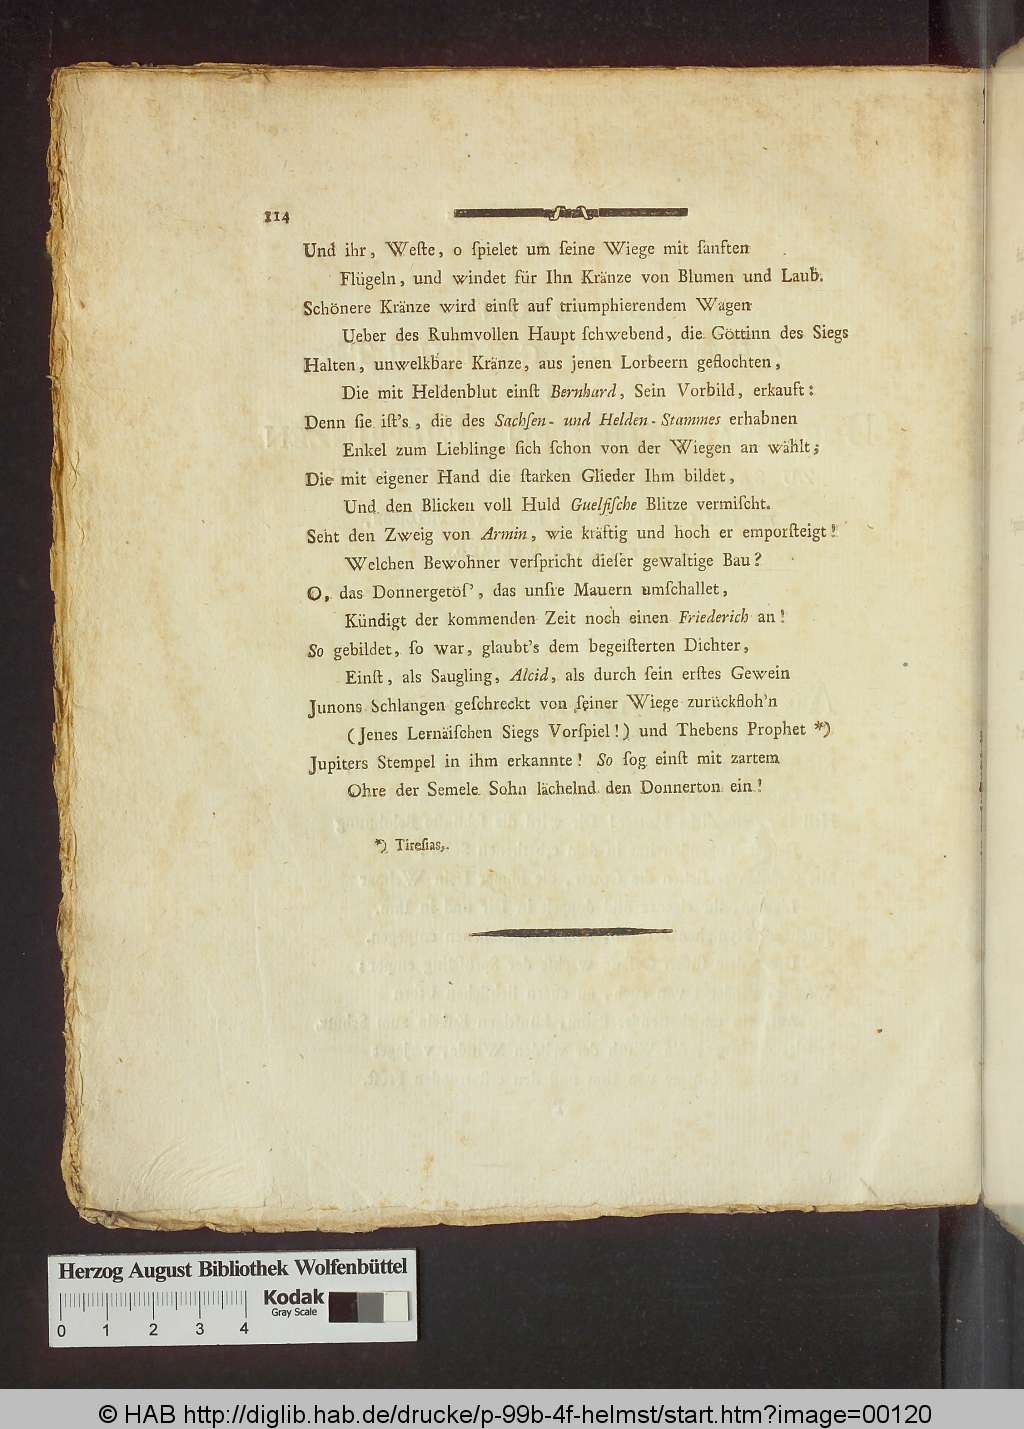 114
Und ihr, Weſte, o ſpielet um ſeine Wiege mit ſanften
Flügeln, und windet für Ihn Kränze von Blumen und Laub.
Schönere Kränze wird einſt auf triumphierendem Wagen
Ueber des Ruhmvollen Haupt ſchwebend, die Göttinn des Siegs
Halten, unwelkbare Kränze, aus jenen Lorbeern geflochten,
Die mit Heldenblut einſt Bernhard, Sein Vorbild, erkauft:
Denn ſie iſt's, die des Sachſen- und Helden-Stammes erhabnen
Enkel zum Lieblinge ſich ſchon von der Wiegen an wählt;
Die mit eigener Hand die ſtarken Glieder Ihm bildet,
Und den Blicken voll Huld Guelfiſche Blitze vermiſcht.
Seht den Zweig von Armin, wie kräftig und hoch er emporſteigt!
Welchen Bewohner verſpricht dieſer gewaltige Bau?
O, das Donnergetöſ', das unſre Mauern umſchallet,
Kündigt der kommenden Zeit noch einen Friederich an!
So gebildet, ſo war, glaubt's dem begeiſterten Dichter,
Einſt, als Saugling, Alcid, als durch ſein erſtes Gewein
Junons Schlangen geſchreckt von ſeiner Wiege zurückfloh'n
(Jenes Lernäiſchen Siegs Vorſpiel!) und Thebens Prophet *)
Jupiters Stempel in ihm erkannte! So ſog einſt mit zartem
Ohre der Semele Sohn lächelnd den Donnerton ein!
*) Tireſias.
Herzog August Bibliothek Wolfenbüttel
Kodak
Gray Scale
0 1 2 3 4
© HAB http://diglib.hab.de/drucke/p-99b-4f-helmst/start.htm?image=00120